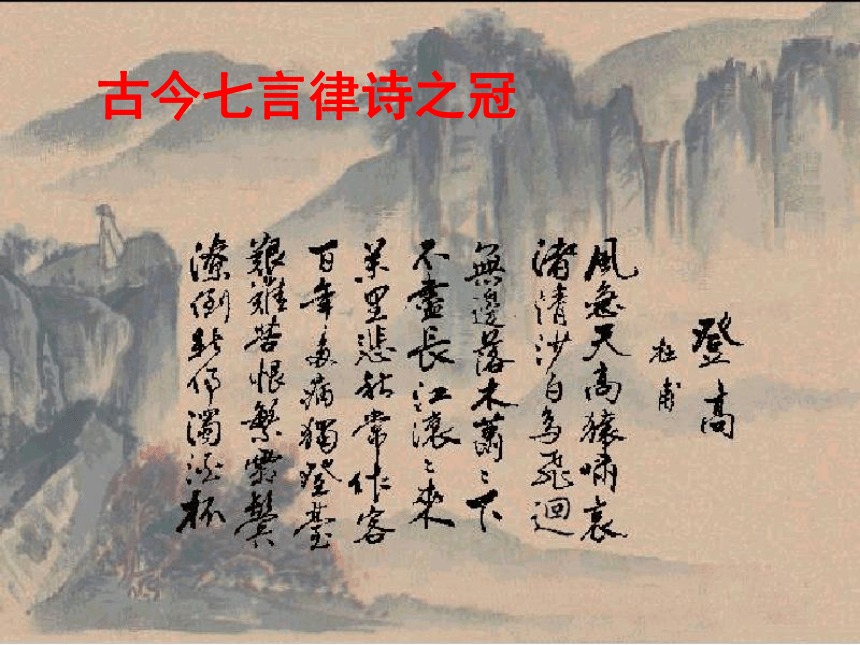 古今七言律诗之冠
登高
杜甫
風急天高猿嘯哀
渚清沙白鳥飛迴
無邊落木蕭〻下
不盡長江滾〻來
萬里悲秋常作客
百年多病獨登臺
艱難苦恨繁霜鬢
潦倒新停濁酒杯